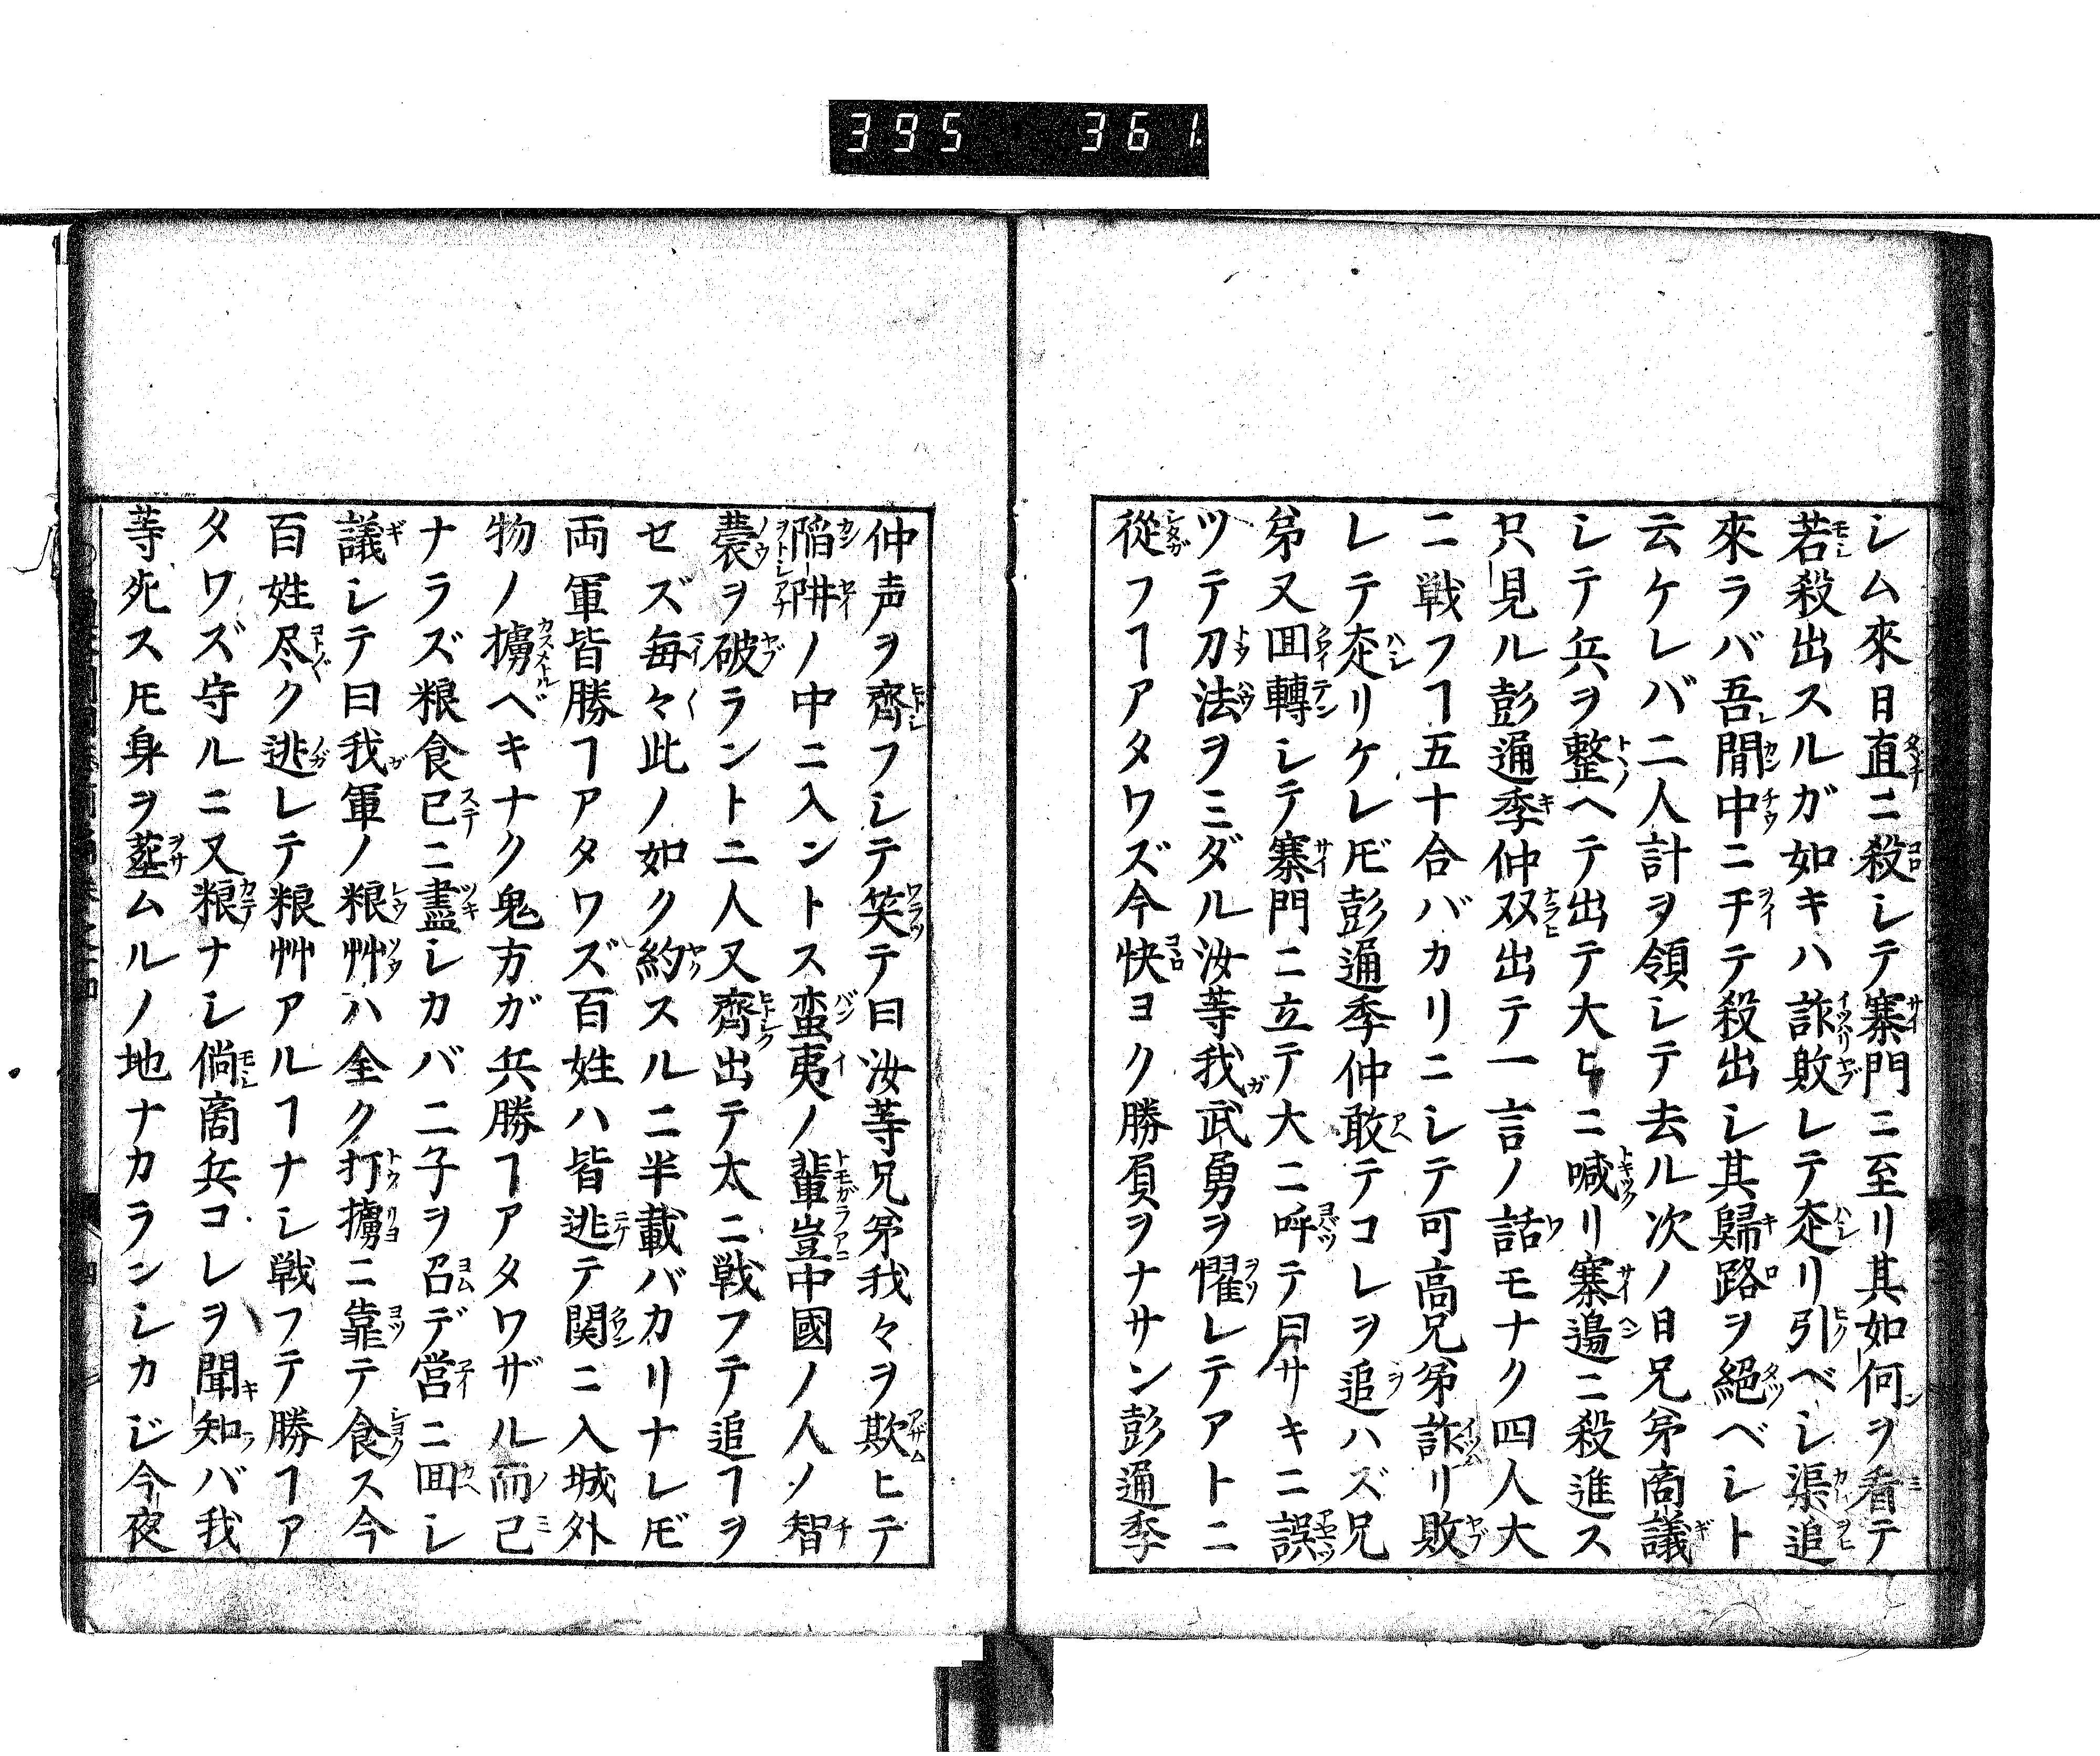 395 361
シム來日直ニ殺シテ寨門ニ至リ其如何ヲ看テ
若殺出スルガ如キハ詐敗レテ走リ引ベシ渠追
來ラバ吾間中ニ于テ殺出シ其歸路ヲ絕ベシト
云ケレバ二人計ヲ領シテ去ル次ノ日兄弟商議
シテ兵ヲ整ヘテ出テ大ヒニ喊リ寨邊ニ殺進ス
只見ル彭通季仲双出テ一言ノ話モナク四人大
ニ戦フヿ五十合バカリニシテ可高兄弟詐リ敗
レテ走リケレ𪜈彭通季仲敢テコレヲ追ハズ兄
弟又回轉シテ寨門ニ立テ大ニ呼テ曰サキニ誤
ツテ刀法ヲミダル汝等我武勇ヲ懼レテアトニ
從フヿアタワズ今快ヨク勝負ヲナサン彭通季
仲声ヲ齊フシテ笑テ曰汝等兄弟我々ヲ欺ヒテ
陷阱ノ中ニ入ントス蛮夷ノ輩豈中國ノ人ノ智
囊ヲ破ラント二人又齊出テ太ニ戦フテ追ヿヲ
セズ毎々此ノ如ク約スルニ半載バカリナレ𪜈
両軍皆勝ヿアタワズ百姓ハ皆逃テ関ニ入城外
物ノ擄ベキナク鬼方ガ兵勝ヿアタワザル而已
ナラズ粮食已ニ盡シカバ二子ヲ召デ営ニ回シ
議シテ曰我軍ノ粮艸ハ全ク打擄ニ靠テ食ス今
百姓尽ク逃レテ粮艸アルヿナシ戦フテ勝ヿア
タワズ守ルニ又粮ナシ倘商兵コレヲ聞知バ我
等死ス𪜈身ヲ葬ムルノ地ナカランシカジ今夜